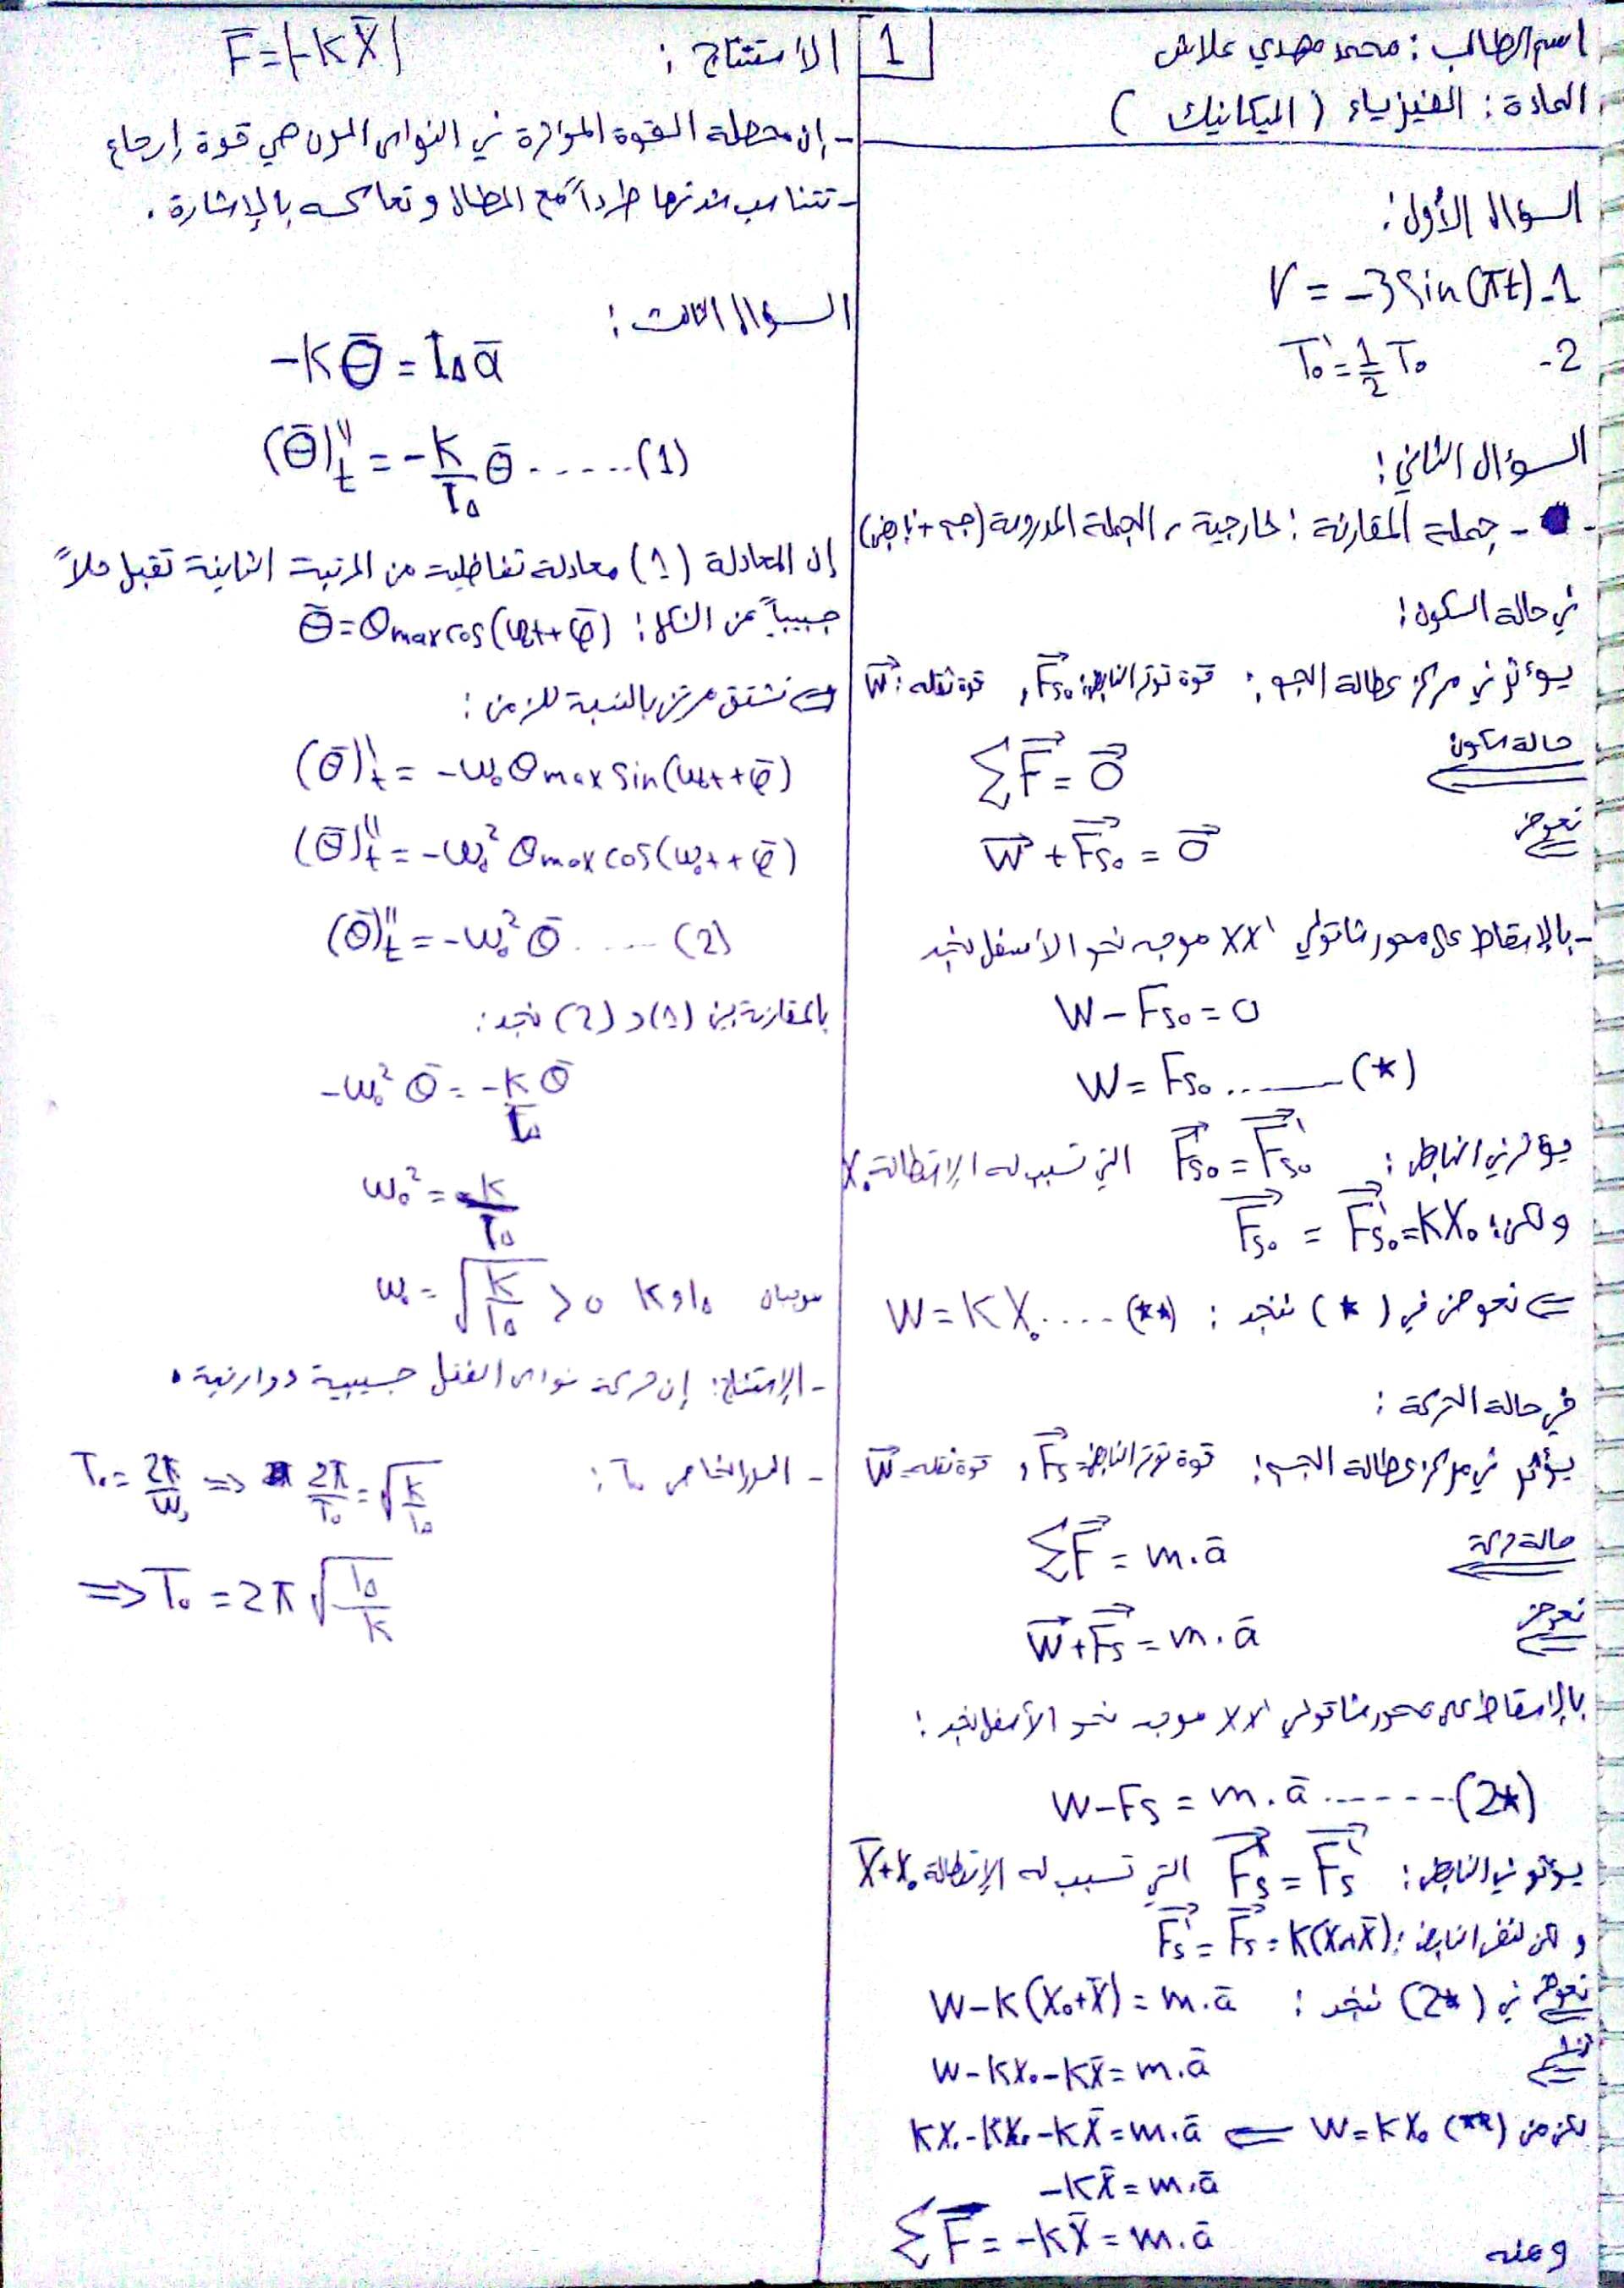 اسم الطالب : محمد مهدي علاش
المادة : الفيزياء ( الميكانيك )
1
السؤال الأول :
V = -3 Sin(πt) -1
T₀' = 1/2 T₀ -2
السؤال الثاني :
- جملة المقارنة : خارجية ، الجملة المدروسة (جسم + نابض)
في حالة السكون :
يؤثر في مركز عطالة الجسم : قوة توتر النابض : F⃗s₀ ، قوة ثقله : W⃗
حالة السكون ⇐ ∑F⃗ = 0⃗
نعوض ⇐ W⃗ + F⃗s₀ = 0⃗
- بالإسقاط على محور شاقولي xx' موجه نحو الأسفل نجد
W - Fs₀ = 0
W = Fs₀ ........ (*)
يؤثر في النابض : F⃗s₀ = F⃗s₀' التي تسبب له الاستطالة X₀
ولكن : F⃗s₀ = F⃗s₀' = KX₀
⇐ نعوض في (*) نجد : W = KX₀ .... (**)
في حالة الحركة :
يؤثر في مركز عطالة الجسم : قوة توتر النابض F⃗s ، قوة ثقله W⃗
حالة حركة ⇐ ∑F⃗ = m.ā
نعوض ⇐ W⃗ + F⃗s = m.ā
بالإسقاط على محور شاقولي xx' موجه نحو الأسفل نجد :
W - Fs = m.ā ...... (2*)
يؤثر في النابض : F⃗s = F⃗s' التي تسبب له الاستطالة X̄+X₀
و لكن لنفس النابض : F⃗s' = F⃗s = K(X₀+X̄)
نعوض في (2*) نجد : W - K(X₀+X̄) = m.ā
W - KX₀ - KX̄ = m.ā
لكن من (**) W = KX₀ ⇐ KX₀ - KX₀ - KX̄ = m.ā
-KX̄ = m.ā
ومنه ∑F⃗ = -KX̄ = m.ā
الاستنتاج : F̄ = |-KX̄|
- إن محصلة القوة المؤثرة في النواس المرن هي قوة إرجاع
- تتناسب شدتها طرداً مع المطال و تعاكسه بالإشارة .
السؤال الثالث :
-Kθ̄ = I∆ ᾱ
(θ̄)''t = -K/I∆ θ̄ ...... (1)
إن المعادلة (1) معادلة تفاضلية من المرتبة الثانية تقبل حلاً
جيبياً من الشكل : θ̄ = θmax cos(ω₀t + φ̄)
⇐ نشتق مرتين بالنسبة للزمن :
(θ̄)'t = -ω₀ θmax Sin(ω₀t + φ̄)
(θ̄)''t = -ω₀² θmax cos(ω₀t + φ̄)
(θ̄)''t = -ω₀² θ̄ ...... (2)
بالمقارنة بين (1) و (2) نجد :
-ω₀² θ̄ = -K/I∆ θ̄
ω₀² = K/I∆
ω₀ = √(K/I∆) > 0 K و I∆ موجبان
- الاستنتاج : إن حركة نواس الفتل جيبية دورانية .
- الدور الخاص T₀ : T₀ = 2π/ω₀ ⇒ 2π/T₀ = √(K/I∆)
⇒ T₀ = 2π √(I∆/K)